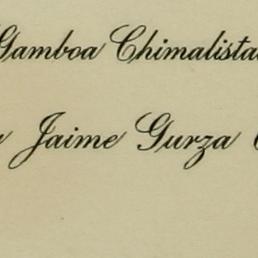 Gamboa Chimalista
Jaime Gurza